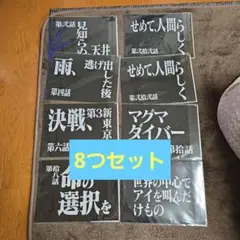 第弐話
見知らぬ
天井
せめて、人間らしく
第弐拾弐話
雨、逃げ出した後
第四話
せめて、人間らしく
第弐拾弐話
決戦、第3新東京
第六話
マグマ
ダイバー
第拾話
8つセット
第拾八話
命の
選択を
世界の中心で
アイを叫んだ
けもの